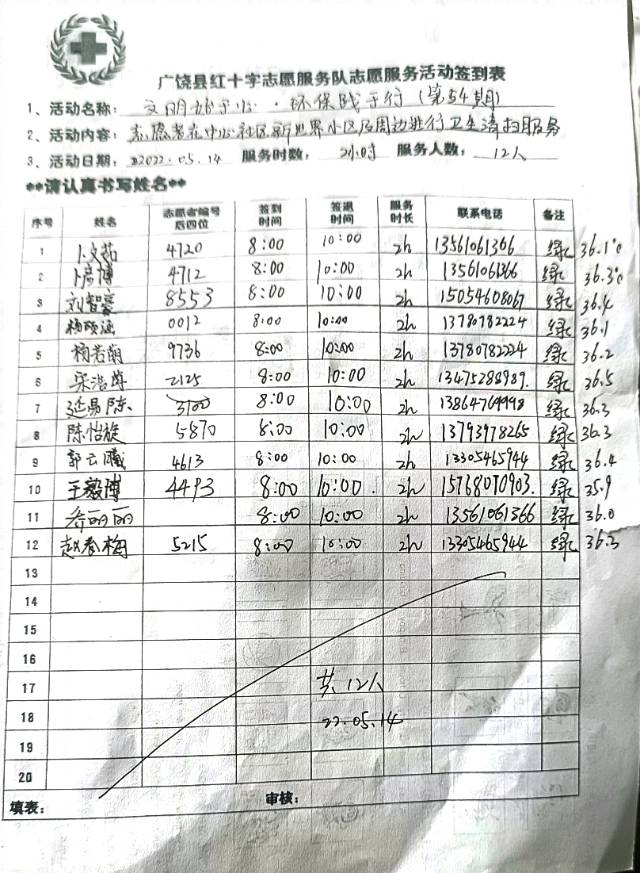 广饶县红十字志愿服务队志愿服务活动签到表
1、活动名称：文明 于心·环保践于行（第54期）
2、活动内容：志愿者在中心社区新世界小区及周边进行卫生清扫服务
3、活动日期：2022.05.14 服务时数：2小时 服务人数：12人
**请认真书写姓名**
序号 姓名 志愿者编号后四位 签到时间 签退时间 服务时长 联系电话 备注
1 卜文茹 4720 8:00 10:00 2h 13561061366 绿 36.1℃
2 卜彦博 4712 8:00 10:00 2h 13561061366 绿 36.3℃
3 刘智豪 8553 8:00 10:00 2h 15054608067 绿 36.4
4 杨硕涵 0012 8:00 10:00 2h 13780782224 绿 36.1
5 杨若萌 9736 8:00 10:00 2h 13780782224 绿 36.2
6 宋浩 2125 8:00 10:00 2h 13475288989. 绿 36.5
7 延易陈 3100 8:00 10:00 2h 13864769998 绿 36.3
8 陈怡旋 5870 8:00 10:00 2h 13793978265 绿 36.3
9 郭云曦 4613 8:00 10:00 2h 13305465944 绿 36.4
10 王 博 4493 8:00 10:00. 2h 15768070903. 绿 35.9
11 丽丽 8:00 10:00 2h 13561061366 绿 36.0
12 赵春梅 5215 8:00 10:00 2h 13305465944 绿 36.3
13
14
15
16
17 共12人
18 22.05.14
19
20
填表： 审核：